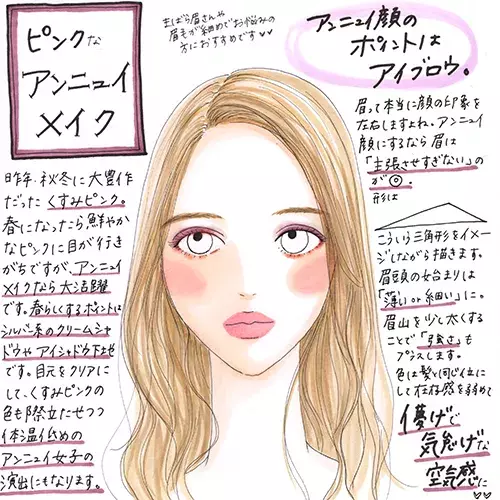 ピンクな
アンニュイ
メイク
まばら眉さんや
眉毛が細めでお悩みの
方におすすめです♥♥
アンニュイ顔の
ポイントは
アイブロウ。
昨年、秋冬に大豊作
だったくすみピンク。
春になったら鮮やか
なピンクに目が行き
がちですが、アンニュイ
メイクなら大活躍
です。春らしくするポイントは
シルバー系のクリームシャ
ドウやアイシャドウ下地
です。目元をクリアに
して、くすみピンクの
色も際立たせつつ
体温低めの
アンニュイ女子の
演出にもなります。
眉って本当に顔の印象を
左右しますよね。アンニュイ
顔にするなら眉は
「主張させすぎない」の
が◎。
形は
こういう三角形をイメー
ジしながら描きます。
眉頭の始まりは
「薄いor細い」に。
眉山を少し太くする
ことで「強さ」も
プラスします。
色は髪と同じ位に
して存在感を弱めて
儚げで
気怠げな
空気感に
♥♥